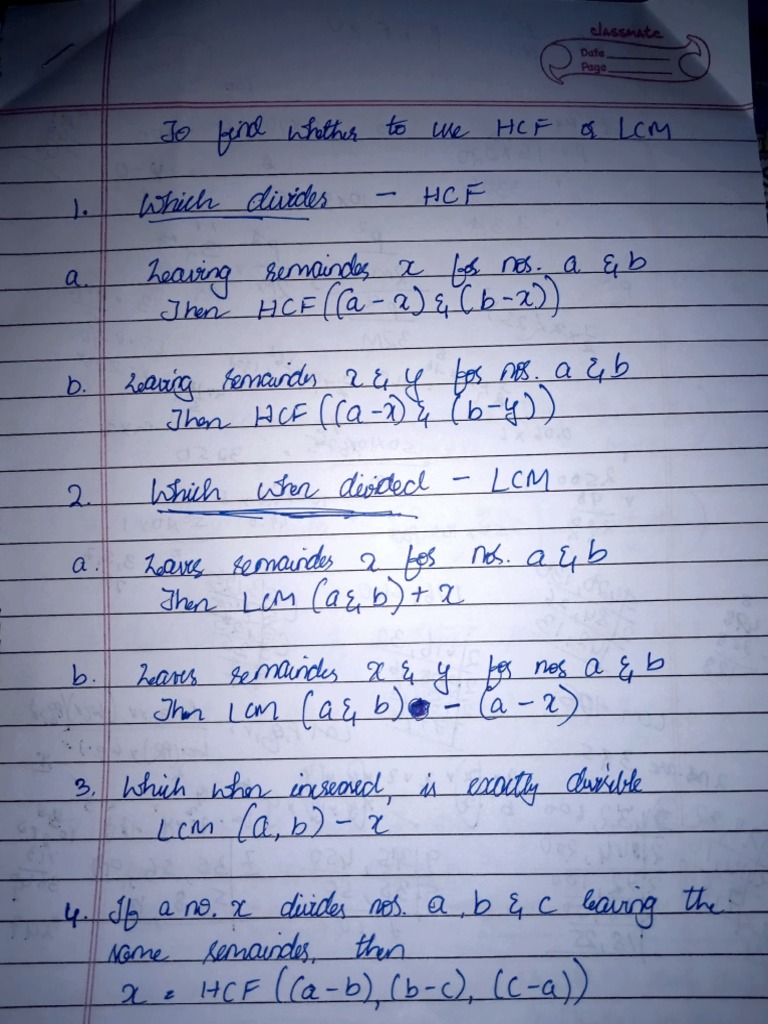 classmate
Date
Page
To find whether to use HCF or LCM
1. Which divides - HCF
a. Leaving remainder x for nos. a & b
Then HCF ((a-x) & (b-x))
b. Leaving remainder x & y for nos. a & b
Then HCF ((a-x) & (b-y))
2. Which when divided - LCM
a. Leaves remainder x for nos. a & b
Then LCM (a & b) + x
b. Leaves remainder x & y for nos a & b
Then LCM (a & b) - (a-x)
3. Which when increased, is exactly divisible
LCM (a, b) - x
4. If a no. x divides nos. a, b & c leaving the
same remainder, then
x = HCF ((a-b), (b-c), (c-a))